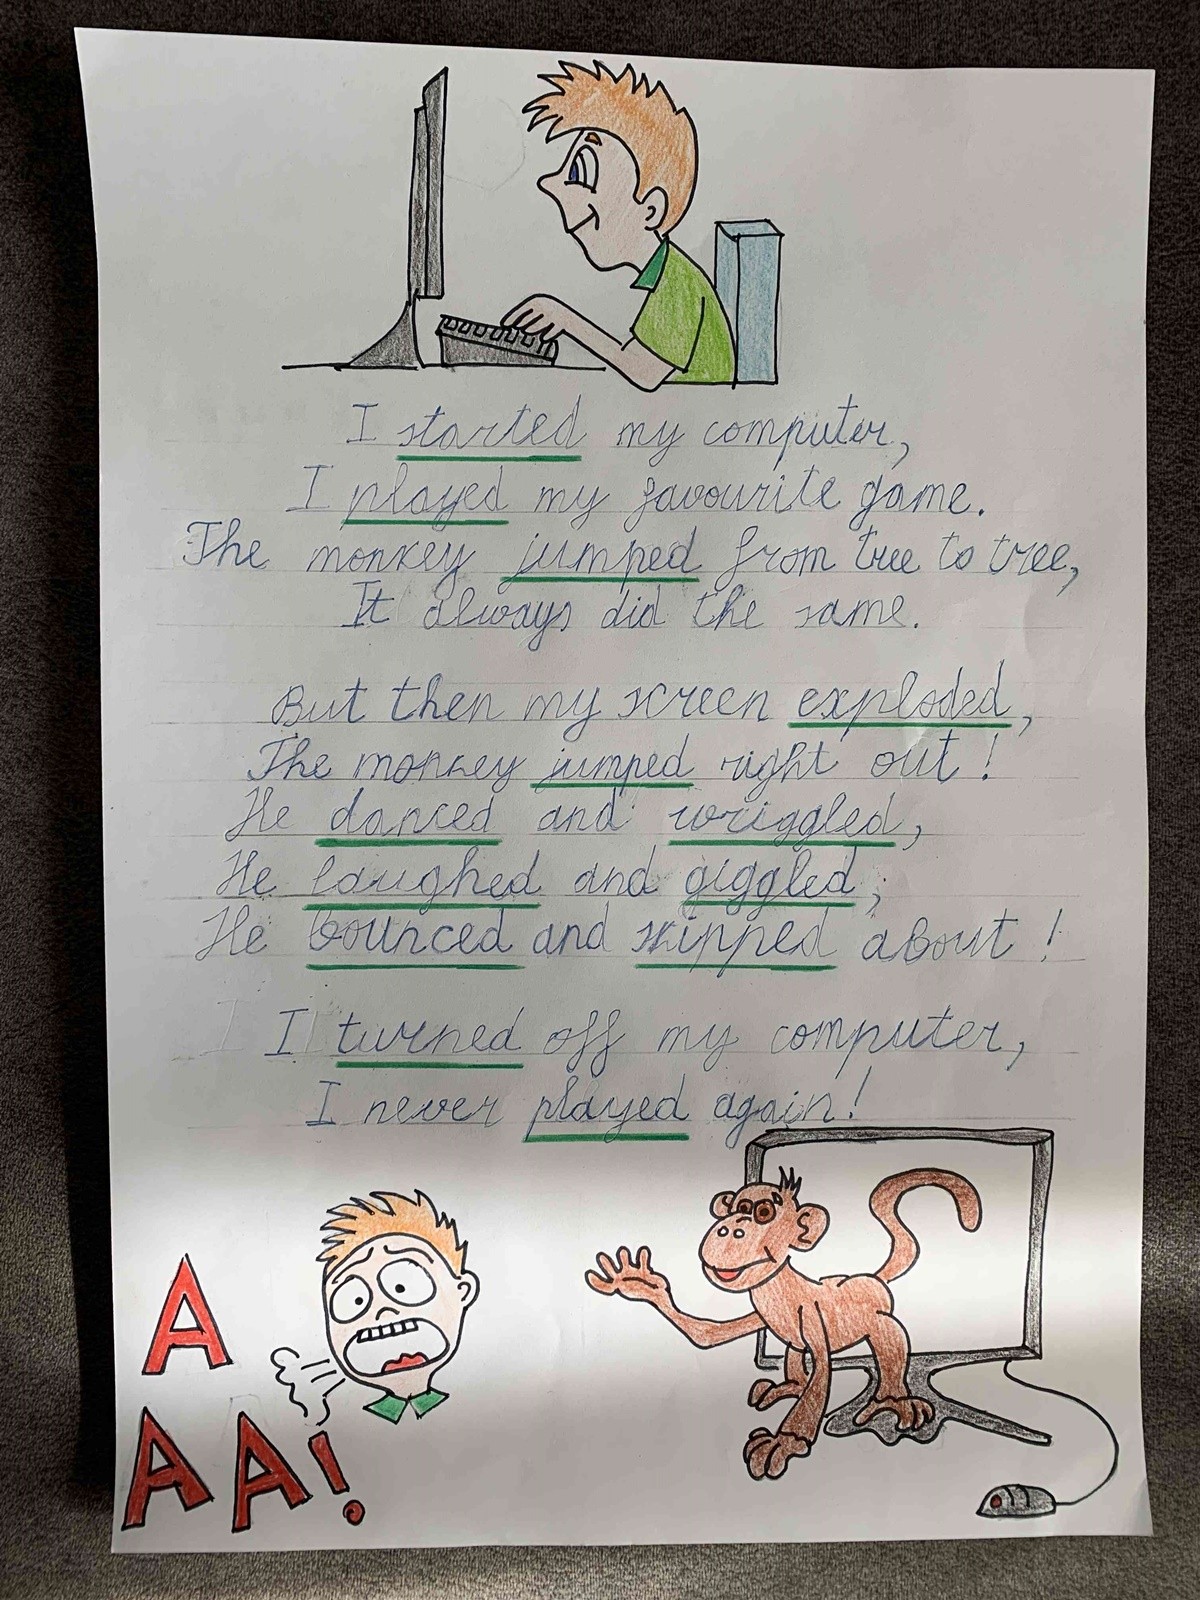 I started my computer,
I played my favourite game.
The monkey jumped from tree to tree,
It always did the same.
But then my screen exploded,
The monkey jumped right out!
He danced and wriggled,
He laughed and giggled,
He bounced and skipped about!
I turned off my computer,
I never played again!
A
AA!